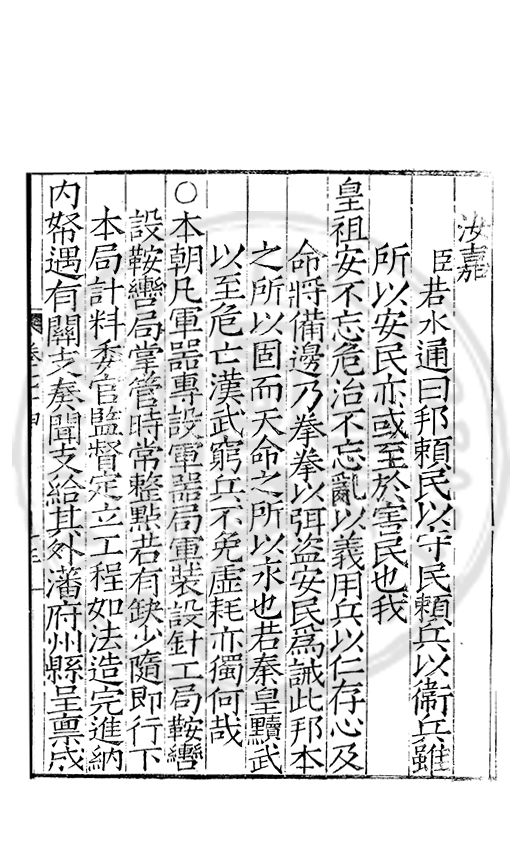 汝嘉
臣若水通曰邦賴民以守民賴兵以衞兵雖
所以安民亦或至於害民也我
皇祖安不忘危治不忘亂以義用兵以仁存心及
命將備邊乃拳拳以弭盜安民爲誡此邦本
之所以固而天命之所以永也若秦皇黷武
以至危亡漢武窮兵不免虛耗亦獨何哉
○本朝凡軍器專設軍器局軍裝設針工局鞍轡
設鞍轡局掌管時常整點若有缺少隨即行下
本局計料委官監督定立工程如法造完進納
内帑遇有關支奏聞支給其外藩府州縣呈禀成